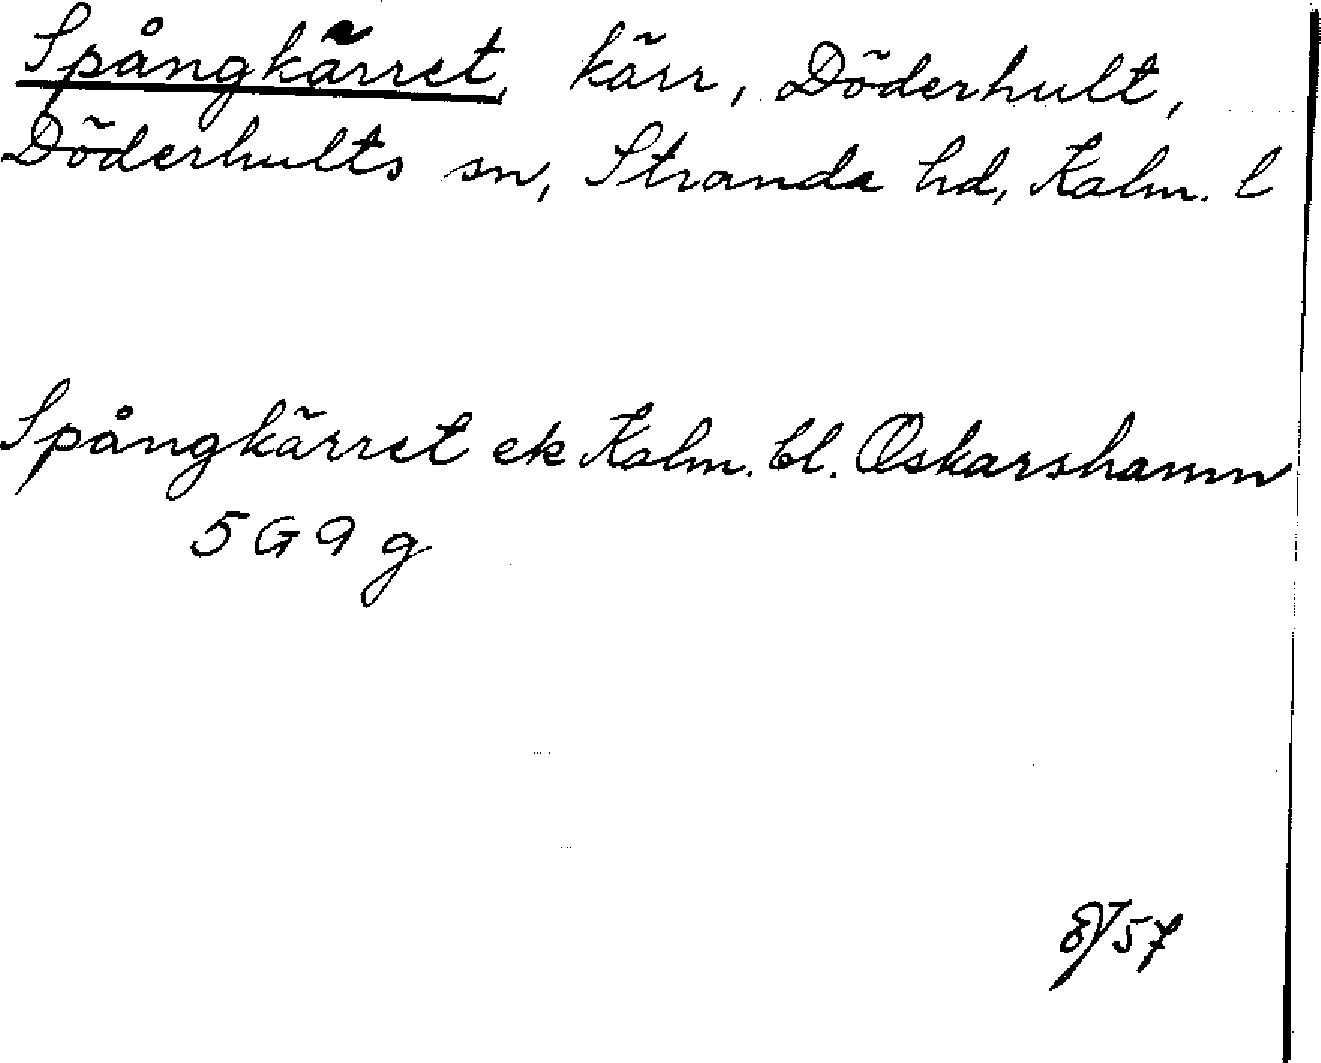 Spångkärret, kärr, Döderhult,
Döderhults sn, Stranda hd, Kalm. l
Spångkärret ek Kalm. bl. Oskarshamn
5 G 9 g
57